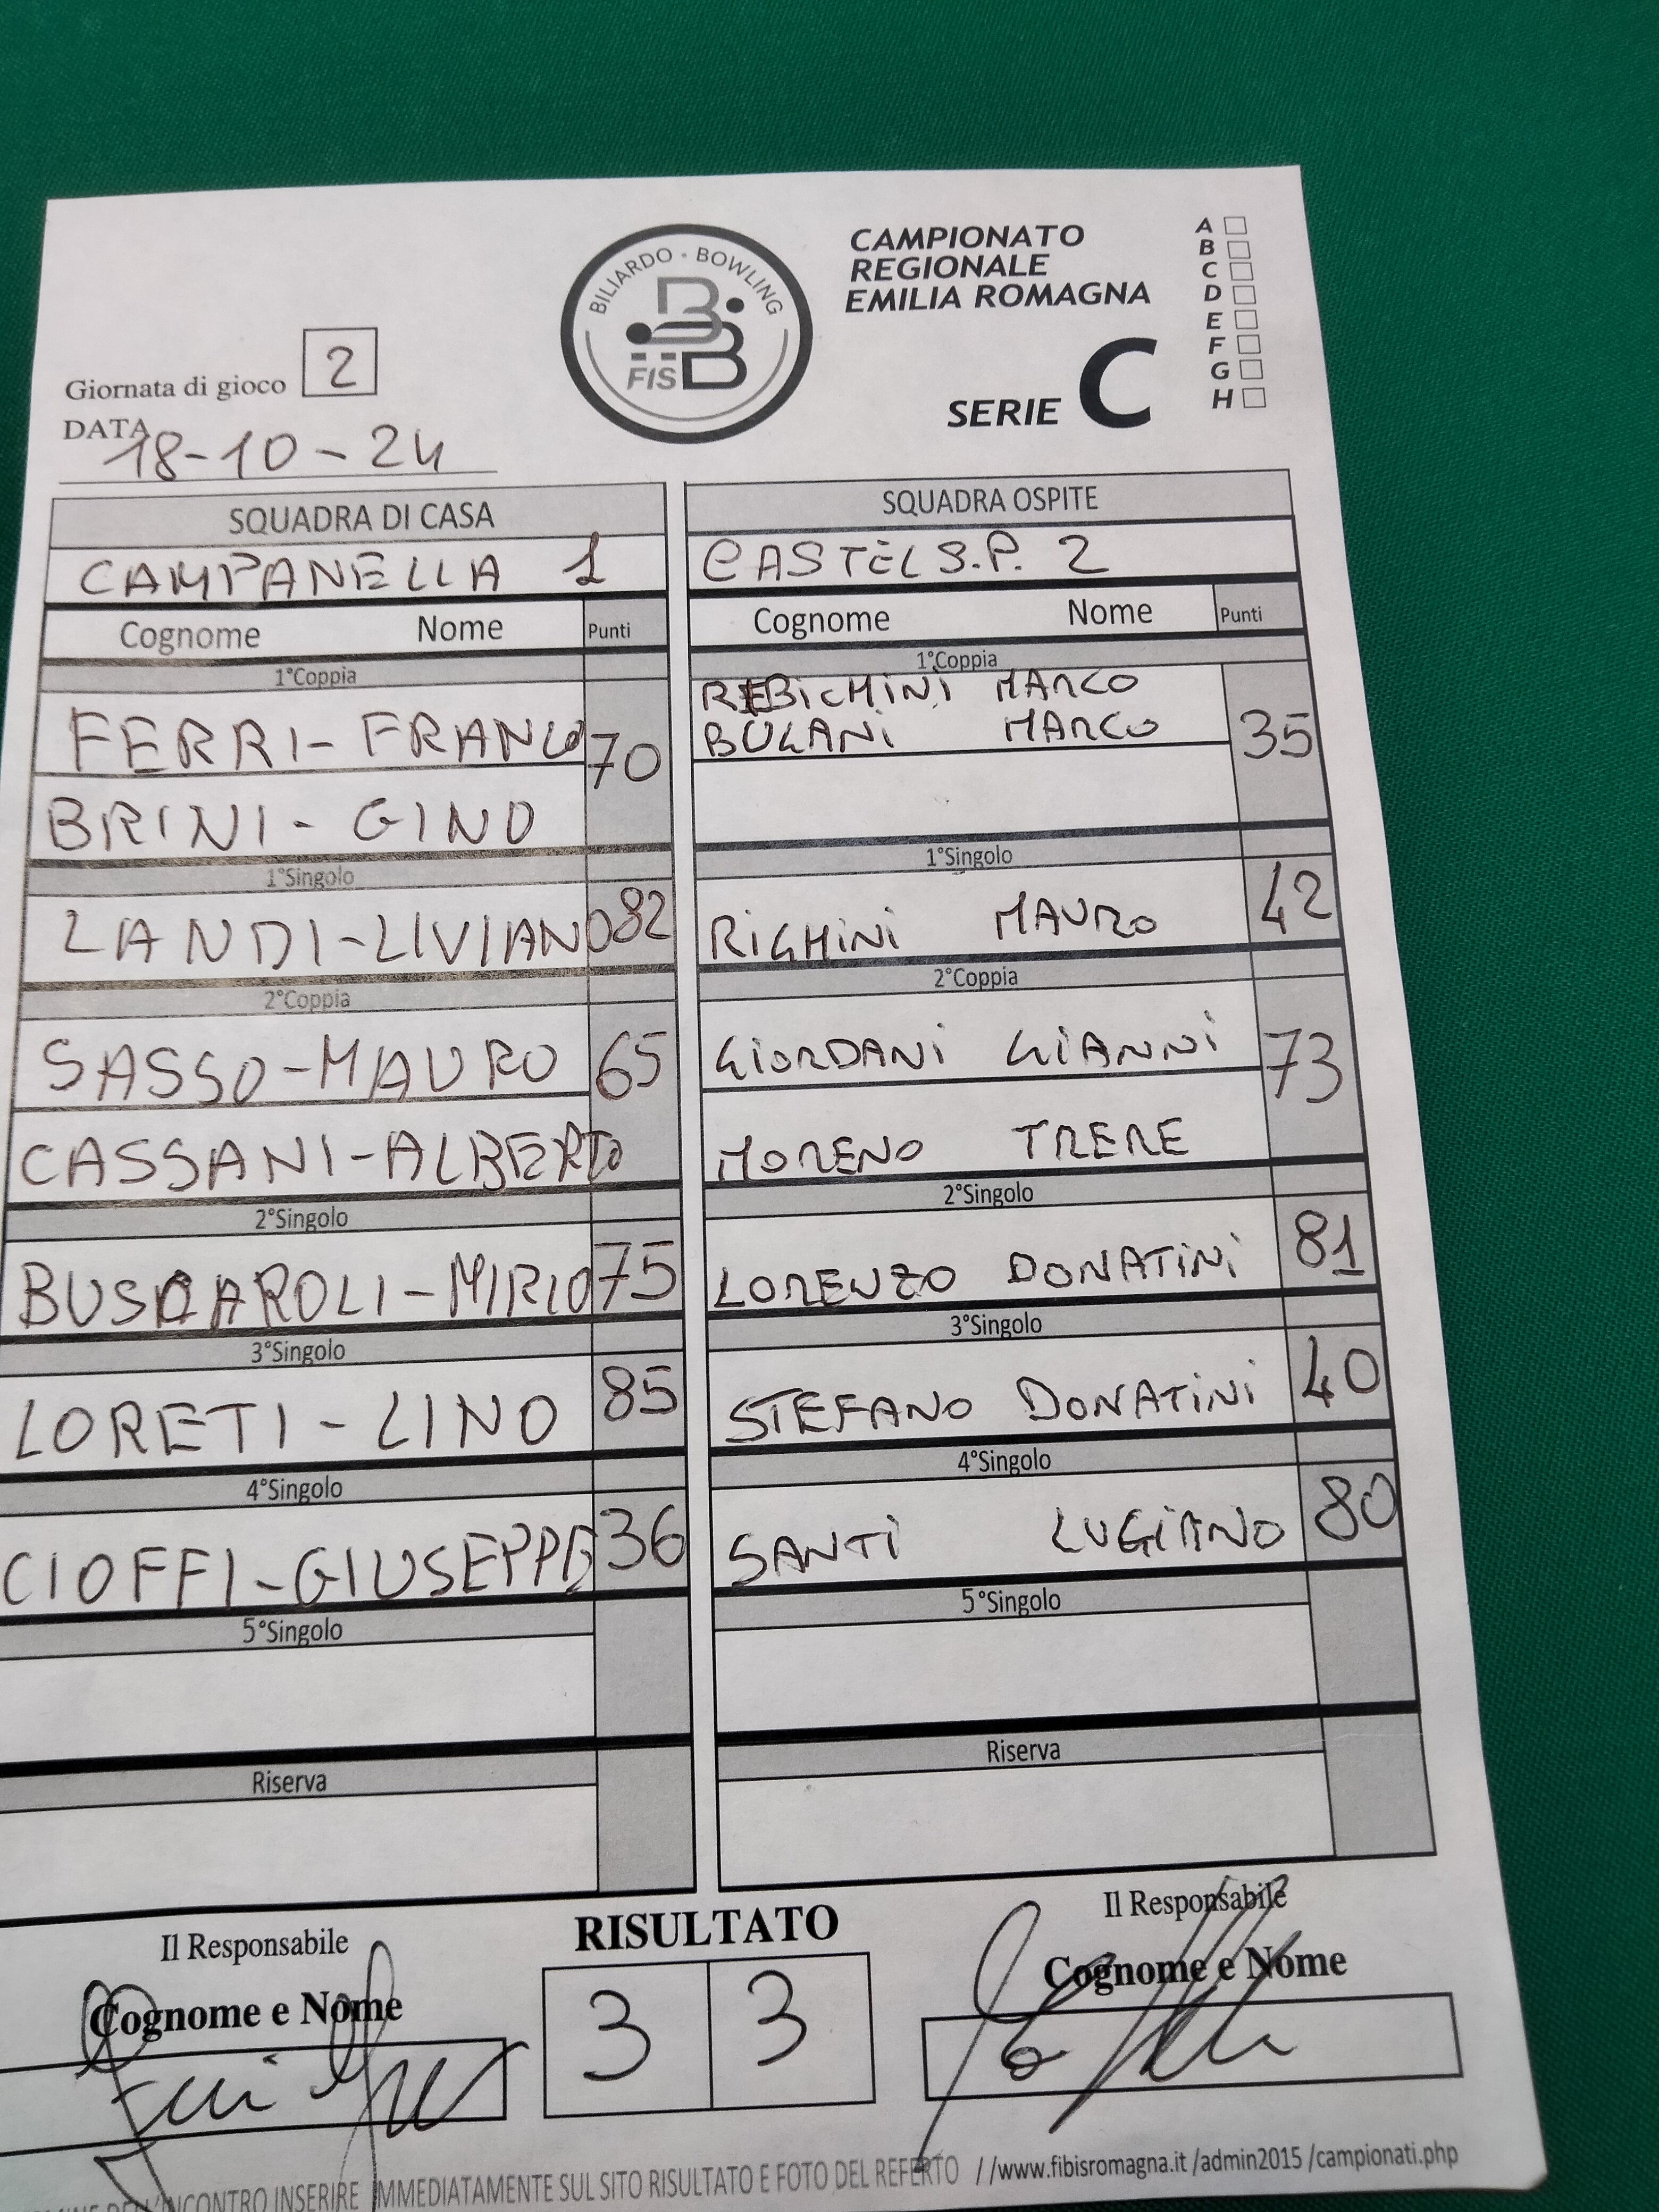 BILIARDO · BOWLING
FISBB
CAMPIONATO
REGIONALE
EMILIA ROMAGNA
SERIE C
A
B
C
D
E
F
G
H
Giornata di gioco 2
DATA
18-10-24
SQUADRA DI CASA
CAMPANELLA 1
Cognome Nome Punti
1°Coppia
FERRI-FRANCO 70
BRINI-GINO
1°Singolo
LANDI-LIVIANO 82
2°Coppia
SASSO-MAURO 65
CASSANI-ALBERTO
2°Singolo
BUSCAROLI-MIRIO 75
3°Singolo
LORETI-LINO 85
4°Singolo
CIOFFI-GIUSEPPE 36
5°Singolo
Riserva
SQUADRA OSPITE
CASTEL S.P. 2
Cognome Nome Punti
1°Coppia
REBICHINI MARCO 35
MARCO
1°Singolo
RIGHINI MAURO 42
2°Coppia
GIORDANI GIANNI 73
MORENO TRERE
2°Singolo
LORENZO DONATINI 81
3°Singolo
STEFANO DONATINI 40
4°Singolo
SANTI LUGIANO 80
5°Singolo
Riserva
Il Responsabile
Cognome e Nome
RISULTATO
3 3
Il Responsabile
Cognome e Nome
DELL'INCONTRO INSERIRE IMMEDIATAMENTE SUL SITO RISULTATO E FOTO DEL REFERTO //www.fibisromagna.it /admin2015 /campionati.php